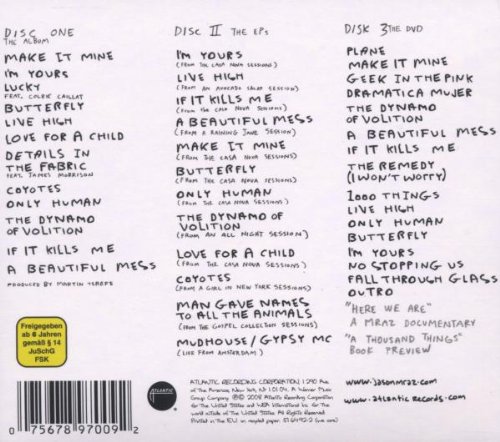 DISC ONE
THE ALBUM
MAKE IT MINE
I'M YOURS
LUCKY
FEAT. COLBIE CAILLAT
BUTTERFLY
LIVE HIGH
LOVE FOR A CHILD
DETAILS IN
THE FABRIC
FEAT. JAMES MORRISON
COYOTES
ONLY HUMAN
THE DYNAMO
OF VOLITION
IF IT KILLS ME
A BEAUTIFUL MESS
PRODUCED BY MARTIN TEREFE
DISC II THE EPs
I'M YOURS
(FROM THE CASA NOVA SESSIONS)
LIVE HIGH
(FROM AN AVOCADO SALAD SESSION)
IF IT KILLS ME
(FROM THE CASA NOVA SESSIONS)
A BEAUTIFUL MESS
(FROM A RAINING JANE SESSION)
MAKE IT MINE
(FROM THE CASA NOVA SESSIONS)
BUTTERFLY
(FROM THE CASA NOVA SESSIONS)
ONLY HUMAN
(FROM THE CASA NOVA SESSIONS)
THE DYNAMO OF
VOLITION
(FROM AN ALL NIGHT SESSION)
LOVE FOR A CHILD
(FROM THE CASA NOVA SESSIONS)
COYOTES
(FROM A GIRL IN NEW YORK SESSIONS)
MAN GAVE NAMES
TO ALL THE ANIMALS
(FROM THE GOSPEL COLLECTION SESSIONS)
MUDHOUSE/GYPSY MC
(LIVE FROM AMSTERDAM)
DISK 3 THE DVD
PLANE
MAKE IT MINE
GEEK IN THE PINK
DRAMATICA MUJER
THE DYNAMO
OF VOLITION
A BEAUTIFUL MESS
IF IT KILLS ME
THE REMEDY
(I WON'T WORRY)
1000 THINGS
LIVE HIGH
ONLY HUMAN
BUTTERFLY
I'M YOURS
NO STOPPING US
FALL THROUGH GLASS
OUTRO
"HERE WE ARE"
A MRAZ DOCUMENTARY
"A THOUSAND THINGS"
BOOK PREVIEW
www.jasonmraz.com
www.atlantic records.com
Freigegeben
ab 6 Jahren
gemäß § 14
JuSchG
FSK
0 75678 97009 2
ATLANTIC
ATLANTIC RECORDING CORPORATION, 1290 AVE
of The Americas, New York, NY 10104. A Warner Music
Group Company ℗©2008 Atlantic Recording Corporation
for the United States and WEA International Inc. for the
world outside of the United States. All Rights Reserved.
Printed in the EU